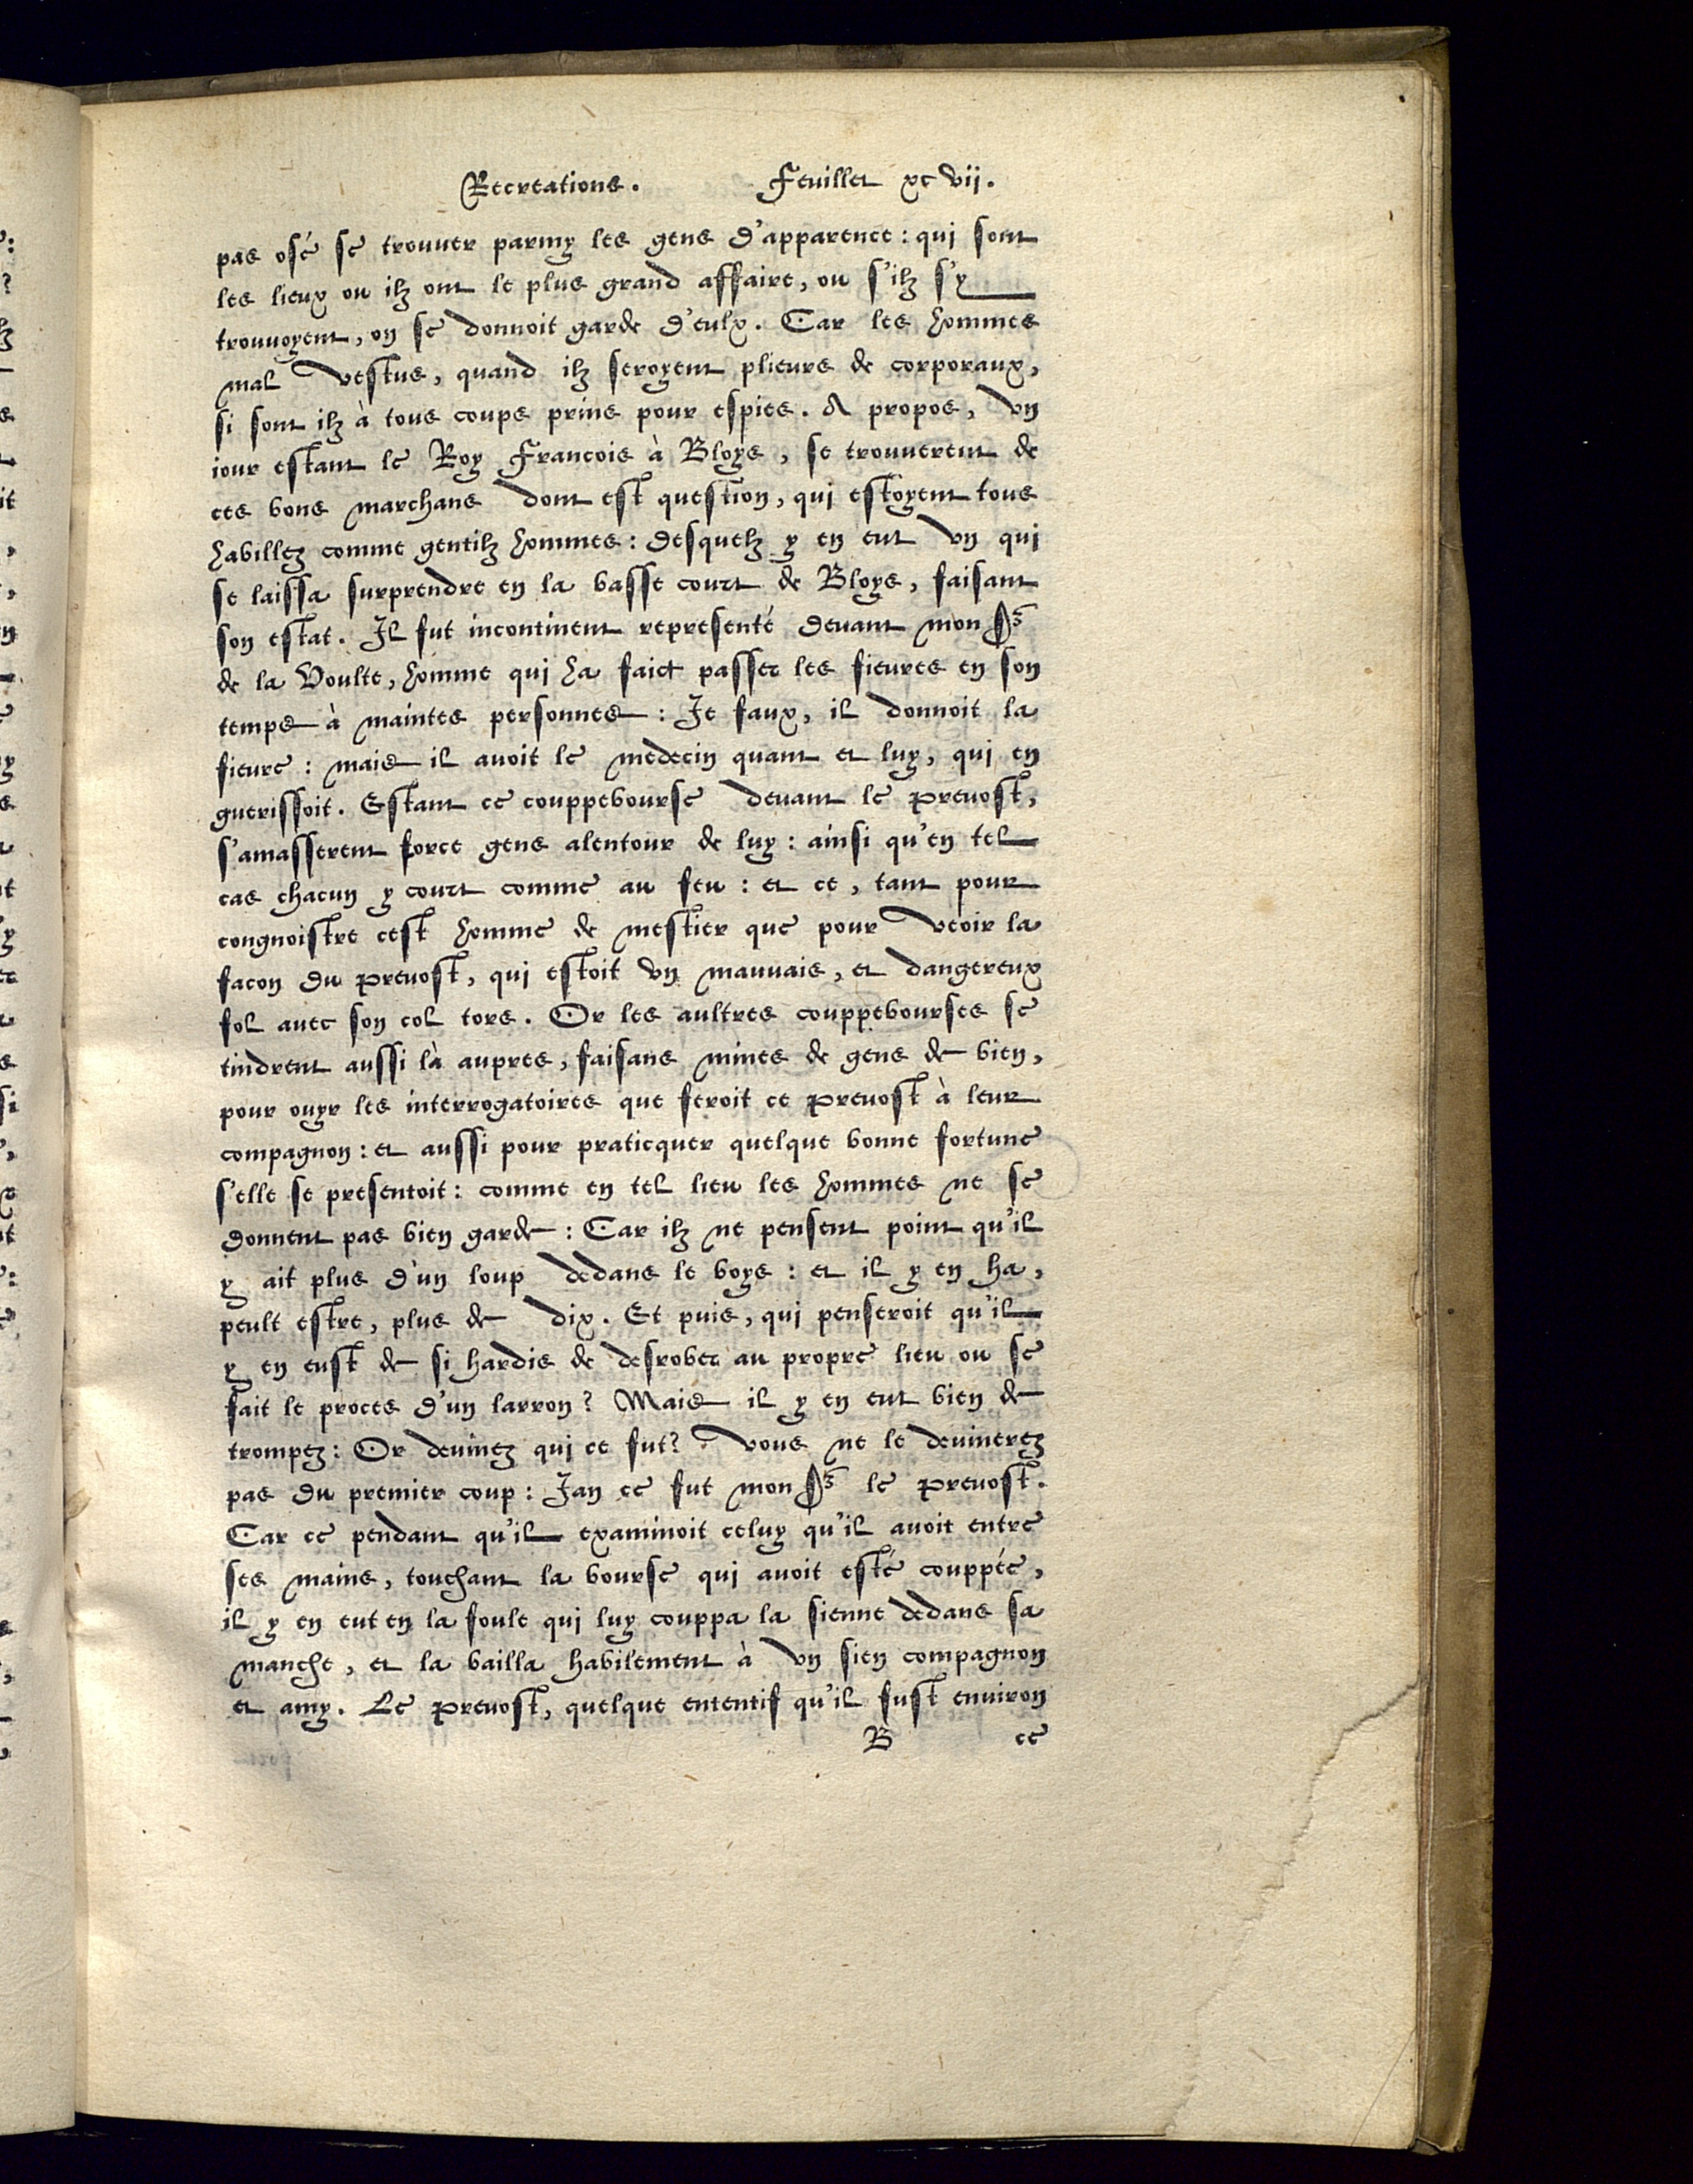 Recreations. Feuillet xcvii.
pas osé se trouuer parmy les gens d'apparence : qui sont
les lieux ou ilz ont le plus grand affaire, ou s'ilz s'y
trouuoyent, on se donnoit garde d'eulx. Car les hommes
mal vestus, quand ilz seroyent plieurs de corporaux,
si sont ilz à tous coups prins pour espies. A propos, vn
iour estant le Roy Francois à Bloys, se trouuerent de
ces bons marchans dont est question, qui estoyent tous
habillez comme gentilz hommes : desquelz y en eut vn qui
se laissa surprendre en la basse court de Bloys, faisant
son estat. Il fut incontinent representé deuant mon Sr
de la Voulte, homme qui ha faict passer les fieures en son
temps à maintes personnes : Je faux, il donnoit la
fieure : mais il auoit le medecin quant et luy, qui en
guerissoit. Estant ce couppebourse deuant le preuost,
s'amasserent force gens alentour de luy : ainsi qu'en tel
cas chacun y court comme au feu : et ce, tant pour
congnoistre cest homme de mestier que pour veoir la
facon du preuost, qui estoit vn mauuais, et dangereux
fol auec son col tors. Or les aultres couppebourses se
tindrent aussi là aupres, faisans mines de gens de bien,
pour ouyr les interrogatoires que feroit ce preuost à leur
compagnon : et aussi pour praticquer quelque bonne fortune
s'elle se presentoit : comme en tel lieu les hommes ne se
donnent pas bien garde : Car ilz ne pensent point qu'il
y ait plus d'un loup dedans le boys : et il y en ha,
peult estre, plus de dix. Et puis, qui penseroit qu'il
y en eust de si hardis de desrober au propre lieu ou se
fait le proces d'un larron? Mais il y en eut bien de
trompez : Or deuinez qui ce fut? vous ne le deuinerez
pas du premier coup : Jan ce fut mon Sr le preuost.
Car ce pendant qu'il examinoit celuy qu'il auoit entre
ses mains, touchant la bourse qui auoit esté couppée,
il y en eut en la foule qui luy couppa la sienne dedans sa
manche, et la bailla habilement à vn sien compagnon
et amy. Le preuost, quelque ententif qu'il fust enuiron
B ce